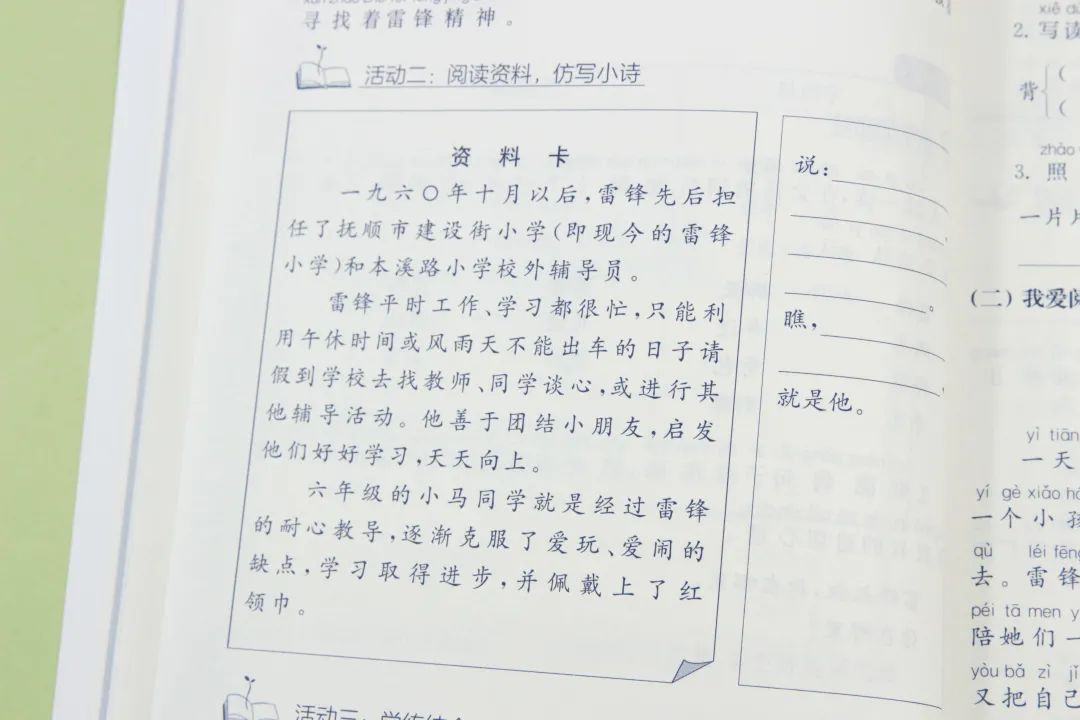 寻找着雷锋精神。
活动二：阅读资料，仿写小诗
资料卡
一九六〇年十月以后，雷锋先后担
任了抚顺市建设街小学（即现今的雷锋
小学）和本溪路小学校外辅导员。
雷锋平时工作、学习都很忙，只能利
用午休时间或风雨天不能出车的日子请
假到学校去找教师、同学谈心，或进行其
他辅导活动。他善于团结小朋友，启发
他们好好学习，天天向上。
六年级的小马同学就是经过雷锋
的耐心教导，逐渐克服了爱玩、爱闹的
缺点，学习取得进步，并佩戴上了红
领巾。
说：
。
瞧，
，
就是他。
2. 写读
背
zhào
3. 照
一片片
（二）我爱阅
yì tiān
一天
yí gè xiǎo há
一个小孩
qù léi fēng
去。雷锋
péi tā men y
陪她们一
yòu bǎ zì jǐ
又把自己